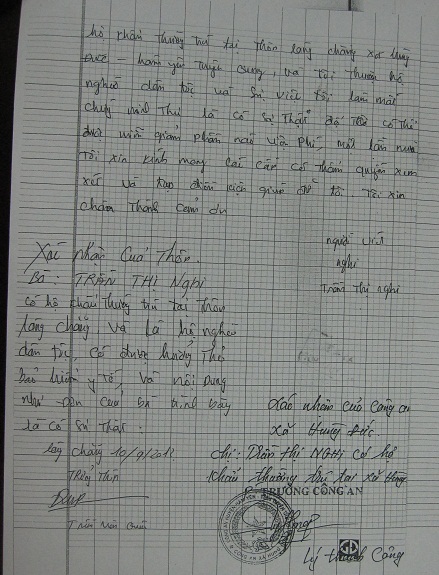 hộ khẩu Thường Trú tại Thôn làng chàng xã Hùng
Đức - hàm yên Tuyên Quang, và Tôi Thuộc hộ
nghèo dân tộc và sự việc tôi làm mất
chứng minh Thư là có sự Thật để có thể
được miễn giảm phần nào viện phí, một lần nữa
Tôi xin kính mong các cấp có thẩm quyền xem
xét và tạo điều kiện giúp đỡ tôi. Tôi xin
chân Thành Cảm ơn
người viết
nghi
Trần Thị nghi
Xác nhận Của Thôn.
Bà: TRẦN THỊ Nghi
có hộ khẩu Thường trú tại Thôn
làng chàng, và là hộ nghèo
dân tộc, có được hưởng Thẻ
bảo hiểm y Tế và nội Dung
như đơn của bà trình bày
là có sự Thật.
làng chàng 10/9/2012
Trưởng Thôn
Xác nhận của công an
xã Hùng Đức.
chị: Trần thị NGHI có hộ
khẩu thường trú tại xã Hùng
TRƯỞNG CÔNG AN
Lý Thành Công